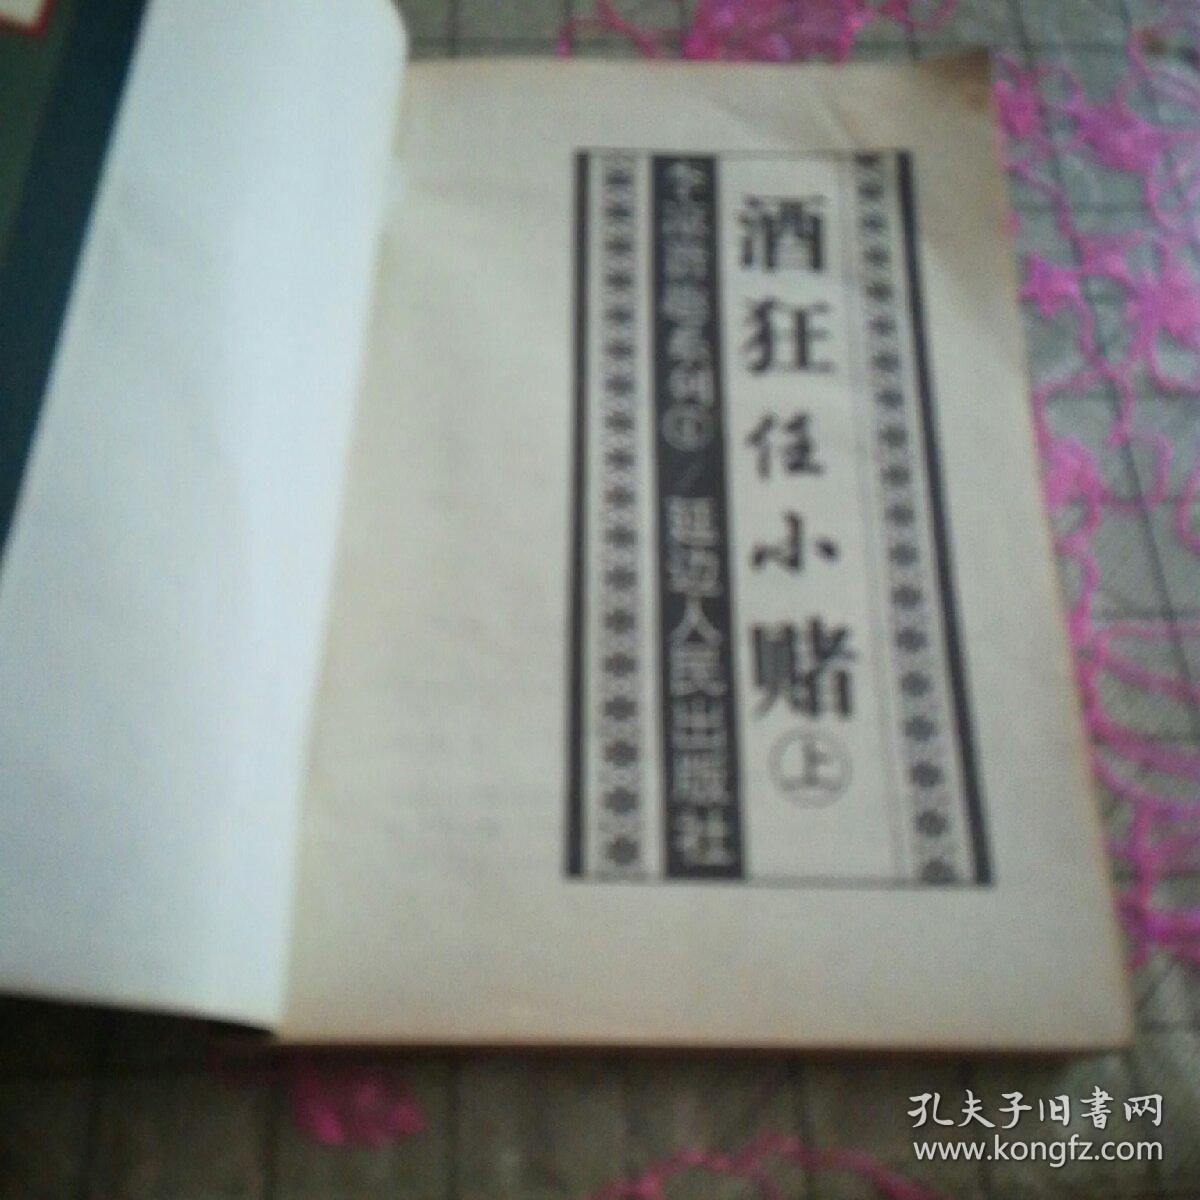 酒狂任小赌 上
李凉诙谐系列①／延边人民出版社
孔夫子旧書网
www.kongfz.com